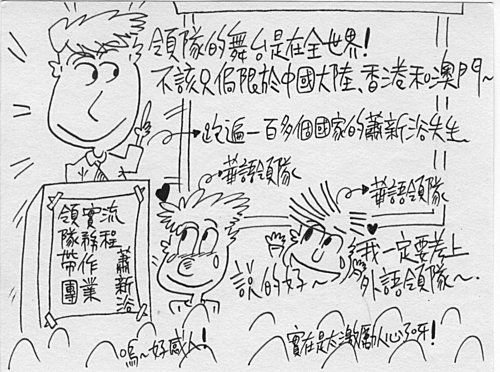 領隊的舞台是在全世界!
不該只侷限於中國大陸、香港和澳門~
跑遍一百多個國家的蕭新浴先生
華語領隊
華語領隊
領隊帶團
實務作業
流程
蕭新浴
說的好~
我一定要考上
外語領隊~.
嗚~好感人!
實在是太激勵人心了呀!